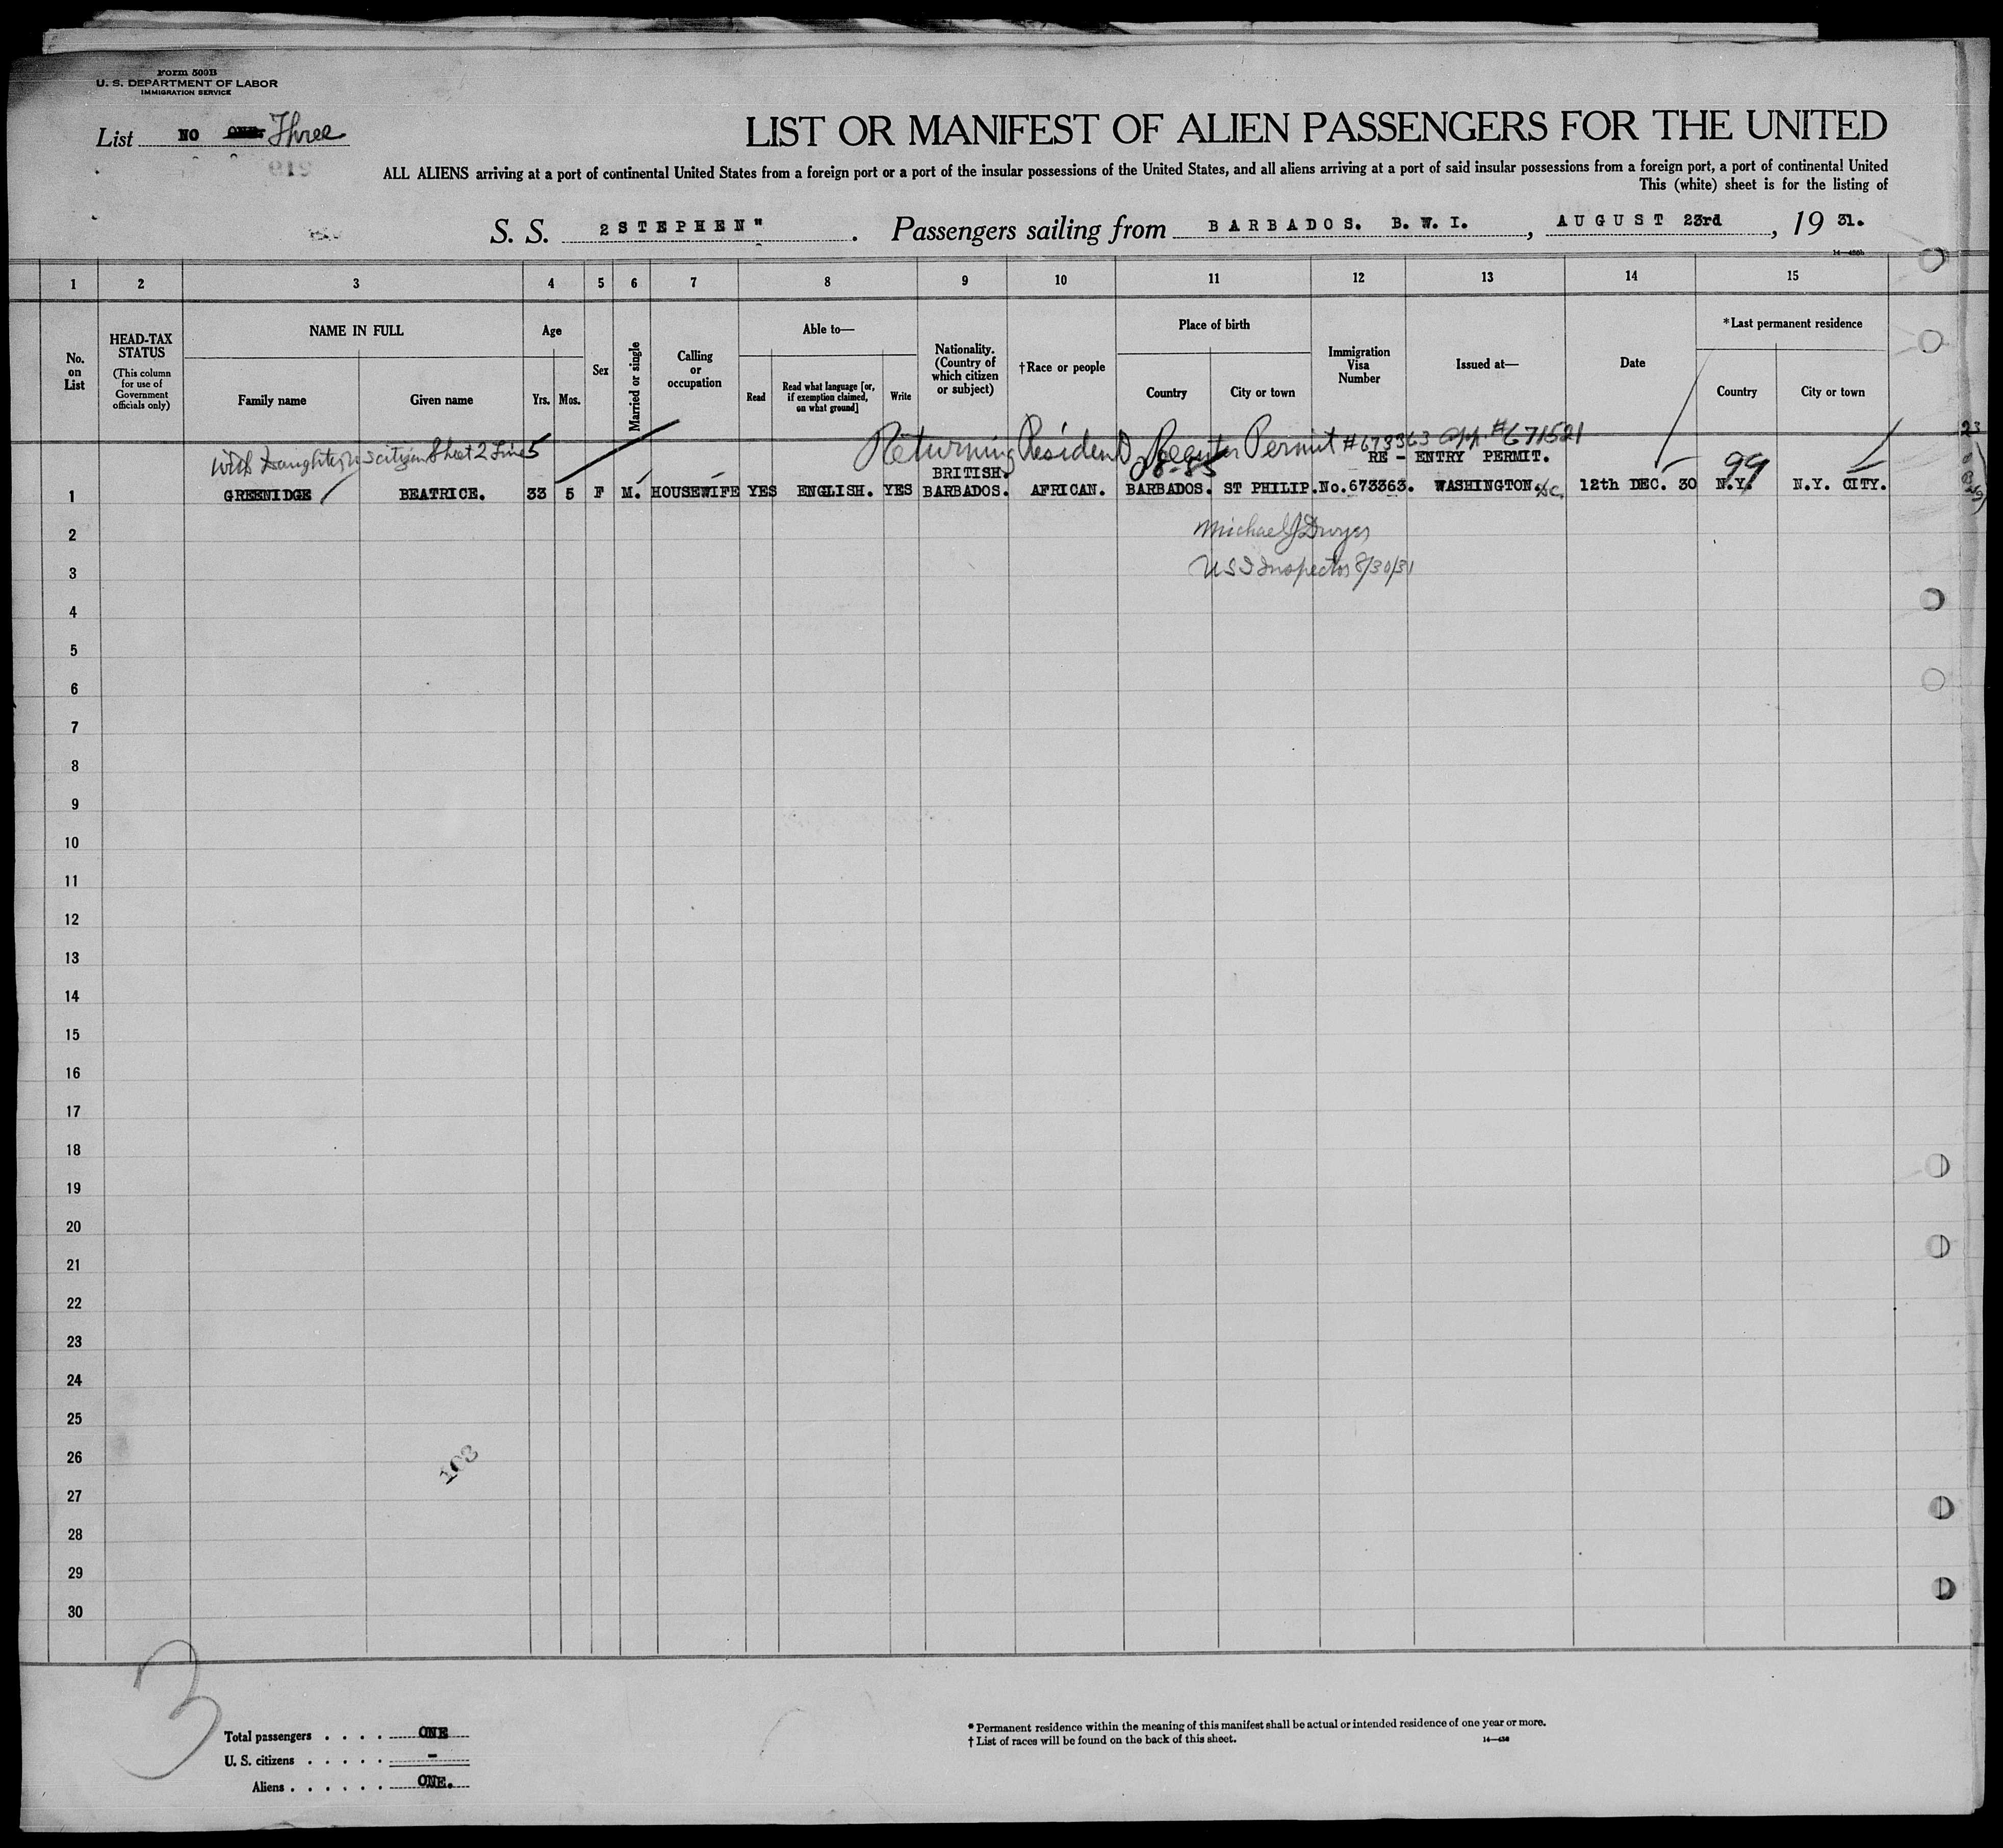 Form 500B
U. S. DEPARTMENT OF LABOR
IMMIGRATION SERVICE
List NO ONE. Three
919
LIST OR MANIFEST OF ALIEN PASSENGERS FOR THE UNITED
ALL ALIENS arriving at a port of continental United States from a foreign port or a port of the insular possessions of the United States, and all aliens arriving at a port of said insular possessions from a foreign port, a port of continental United
This (white) sheet is for the listing of
S. S. 2STEPHEN" . Passengers sailing from BARBADOS. B.W.I. , AUGUST 23rd , 19 31.
1 2 3 4 5 6 7 8 9 10 11 12 13 14 15
No. on List
HEAD-TAX STATUS
(This column for use of Government officials only)
NAME IN FULL
Family name Given name
Age
Yrs. Mos.
Sex
Married or single
Calling or occupation
Able to—
Read
Read what language [or, if exemption claimed, on what ground]
Write
Nationality. (Country of which citizen or subject)
†Race or people
Place of birth
Country City or town
Immigration Visa Number
Issued at—
Date
*Last permanent residence
Country City or town
With daughter US citizen Sheet 2 Line 5
Returning Resident Permit #673363 #671521
RE - ENTRY PERMIT.
BRITISH.
99
1 GREENIDGE BEATRICE. 33 5 F M. HOUSEWIFE YES ENGLISH. YES BARBADOS. AFRICAN. BARBADOS. ST PHILIP. No.673363. WASHINGTON. DC. 12th DEC. 30 N.Y. N.Y. CITY.
2 Michael J Dwyer
3 US Inspector 8/30/31
4
5
6
7
8
9
10
11
12
13
14
15
16
17
18
19
20
21
22
23
24
25
26
27
28
29
30
103
3
Total passengers . . . . ONE
U. S. citizens . . . . . -
Aliens . . . . . . ONE.
* Permanent residence within the meaning of this manifest shall be actual or intended residence of one year or more.
† List of races will be found on the back of this sheet.